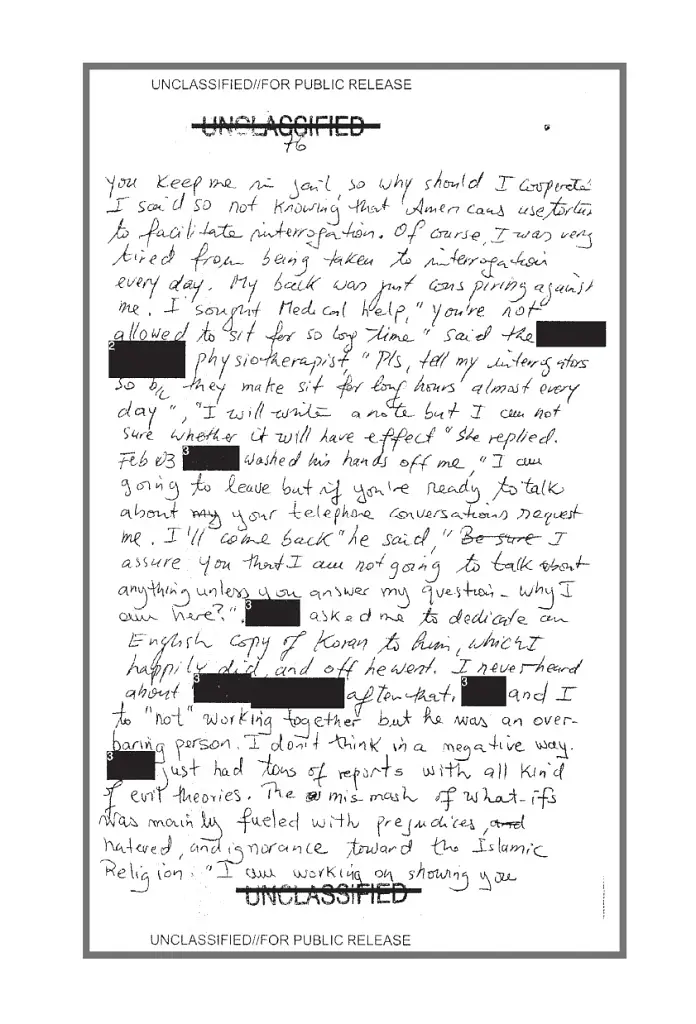 UNCLASSIFIED//FOR PUBLIC RELEASE
UNCLASSIFIED
76
you keep me in jail, so why should I cooperate
I said so not knowing that Americans use tortur
to facilitate interrogation. Of course, I was very
tired from being taken to interrogation
every day. My back was just conspiring against
me. I sought Medical help, "you're not
allowed to sit for so long time" said the
2
physiotherapist, "Pls, tell my interrigators
so b/c they make sit for long hours almost every
day", "I will write a note but I am not
sure whether it will have effect" she replied.
Feb 03 3 washed his hands off me, "I am
going to leave but if you're ready to talk
about my your telephone conversations request
me. I'll come back" he said, " Be sure I
assure you that I am not going to talk about
anything unless you answer my question - why I
am here?". 3 asked me to dedicate an
English copy of Koran to him, which I
happily did, and off he went. I never heard
about 3 after that, 3 and I
to "not" working together but he was an over-
baring person. I don't think in a negative way.
3 just had tons of reports with all kind
of evil theories. The mismash of what-ifs
was mainly fueled with prejudices, and
hatered, and ignorance toward the Islamic
Religion. "I am working on showing you
UNCLASSIFIED
UNCLASSIFIED//FOR PUBLIC RELEASE